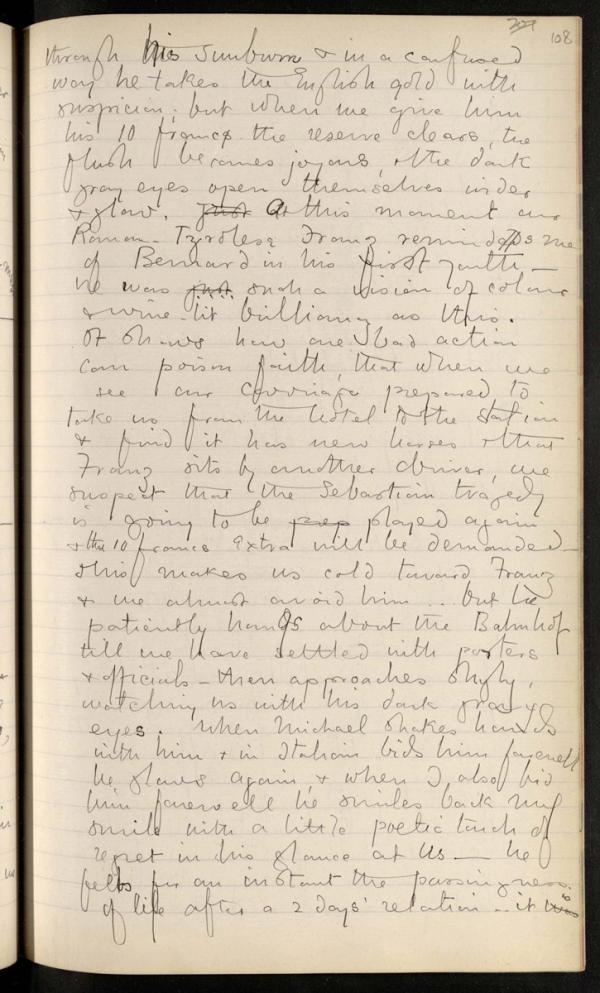 108
through his sunburn & in a confused
way he takes the English gold with
suspicion; but when we give him
his 10 francs the reserve clears, the
flush becomes joyous, & the dark
gray eyes open themselves wider
& glow. just At this moment our
Roman-Tyrolese Franz reminds me
of Bernard in his first youth —
he was just such a vision of colour
& wine-lit brilliancy as this.
It shows how one bad action
can poison faith, that when we
see our carriage prepared to
take us from the hotel to the station
& find it has new horses & that
Franz sits by another driver, we
suspect that the Sebastian tragedy
is going to be prep played again
& the 10 francs extra will be demanded —
this makes us cold toward Franz
& we almost avoid him .. but he
patiently hangs about the Bahnhof
till we have settled with porters
& officials — then approaches shyly,
watching us with his dark gray
eyes. When Michael shakes hands
with him & in Italian bids him farewell
he glows again, & when I also bid
him farewell he smiles back my
smile with a little poetic touch of
regret in his glance at us — he
feels for an instant the passingness
of life after a 2 days' relation .. it is